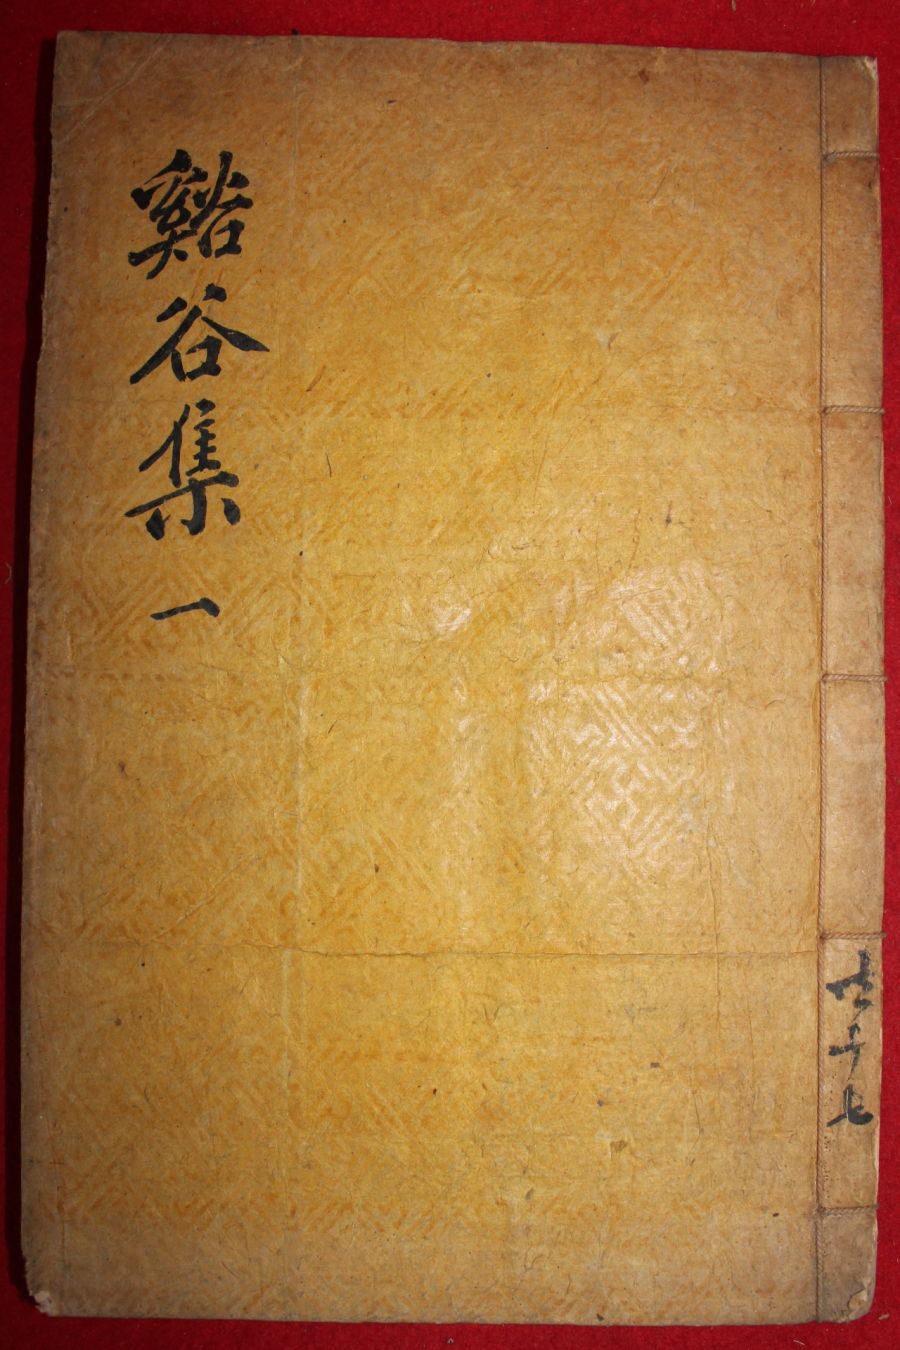 谿谷集 一
共十七